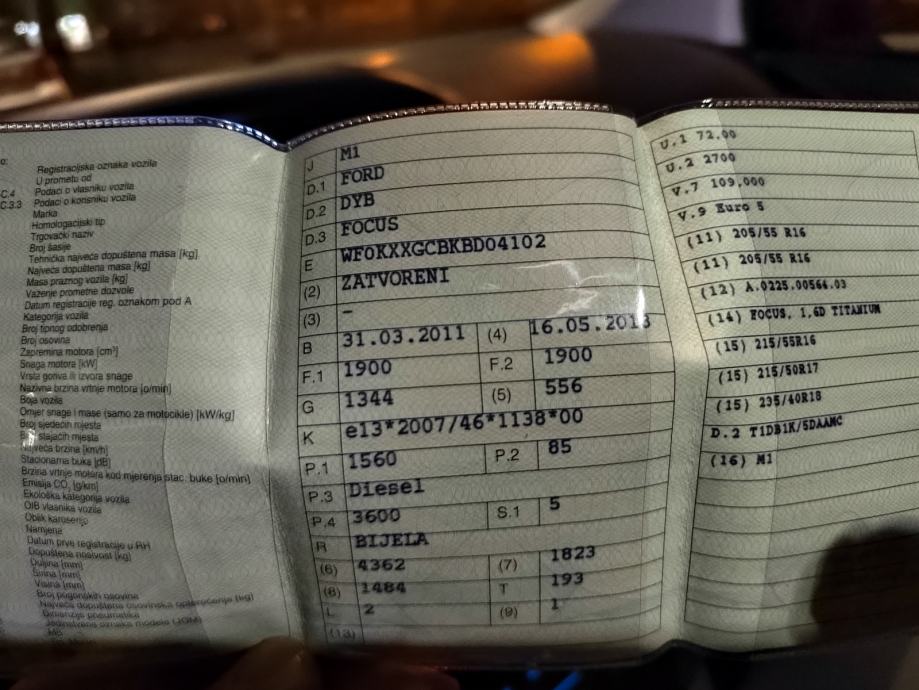 o:
Registracijska oznaka vozila
U prometu od
C.4 Podaci o vlasniku vozila
C.3.3 Podaci o korisniku vozila
Marka
Homologacijski tip
Trgovački naziv
Broj šasije
Tehnička najveća dopuštena masa [kg]
Najveća dopuštena masa [kg]
Masa praznog vozila [kg]
Važenje prometne dozvole
Datum registracije reg. oznakom pod A
Kategorija vozila
Broj tipnog odobrenja
Broj osovina
Zapremina motora [cm³]
Snaga motora [kW]
Vrsta goriva ili izvora snage
Nazivna brzina vrtnje motora [o/min]
Boja vozila
Omjer snage i mase (samo za motocikle) [kW/kg]
Broj sjedećih mjesta
Broj stajaćih mjesta
Najveća brzina [km/h]
Stacionarna buka [dB]
Brzina vrtnje motora kod mjerenja stac. buke [o/min]
Emisija CO₂ [g/km]
Ekološka kategorija vozila
OIB vlasnika vozila
Oblik karoserije
Namjena
Datum prve registracije u RH
Dopuštena nosivost [kg]
Duljina [mm]
Širina [mm]
Visina [mm]
Broj pogonskih osovina
Najveće dopušteno osovinsko opterećenje [kg]
Dimenzije pneumatika
Jedinstvena oznaka modela (JOM)
J M1
D.1 FORD
D.2 DYB
D.3 FOCUS
E WF0KXXGCBKBD04102
(2) ZATVORENI
(3) -
B 31.03.2011 (4) 16.05.2013
F.1 1900 F.2 1900
G 1344 (5) 556
K e13*2007/46*1138*00
P.1 1560 P.2 85
P.3 Diesel
P.4 3600 S.1 5
R BIJELA
(6) 4362 (7) 1823
(8) 1484 T 193
L 2 (9) 1
(13)
U.1 72,00
U.2 2700
V.7 109,000
V.9 Euro 5
(11) 205/55 R16
(11) 205/55 R16
(12) A.0225.00564.03
(14) FOCUS, 1,6D TITANIUM
(15) 215/55R16
(15) 215/50R17
(15) 235/40R18
D.2 T1DB1K/5DAAMC
(16) M1